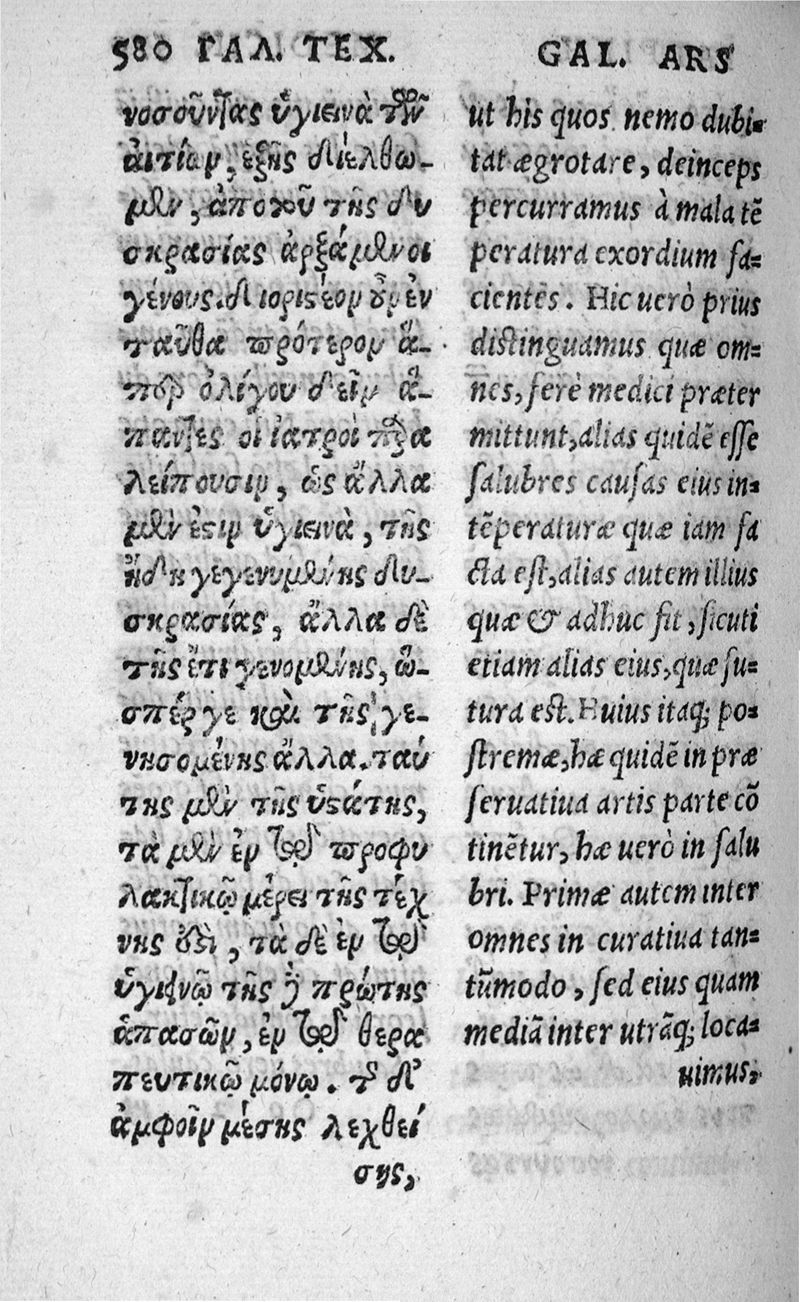 580 ΓΑΛ. ΤΕΧ.
νοσοῦντας ὑγιεινὰ τῶν
αἰτίων, ἑξῆς διέλθω-
μεν, ἀπὸ τοῦ τῆς δυ
σκρασίας ἀρξάμενοι
γένους. διοριστέον οὖν ἐν
ταῦθα πρότερον ἅ-
περ ὀλίγου δεῖν ἅ-
παντες οἱ ἰατροὶ παρα
λείπουσιν, ὡς ἄλλα
μέν ἐστιν ὑγιεινὰ, τῆς
ἤδη γεγενημένης δυ-
σκρασίας, ἄλλα δὲ
τῆς ἔτι γενομένης, ὥ-
σπέρ γε καὶ τῆς γε-
νησομένης ἄλλα. ταύ
της μὲν τῆς ὑστάτης,
τὰ μὲν ἐν τῷ προφυ
λακτικῷ μέρει τῆς τέχ
νης ἐστὶ, τὰ δὲ ἐν τῷ
ὑγιεινῷ τῆς δὲ πρώτης
ἁπασῶν, ἐν τῷ θερα
πευτικῷ μόνῳ. τῆς δ'
ἀμφοῖν μέσης λεχθεί
σης,
GAL. ARS
ut his quos nemo dubi-
tat ægrotare, deinceps
percurramus à mala tē
peratura exordium fa-
cientes. Hic uerò prius
distinguamus quæ om-
nes, ferè medici præter
mittunt, alias quidē esse
salubres causas eius in-
tēperaturæ quæ iam fa
cta est, alias autem illius
quæ & adhuc fit, sicuti
etiam alias eius, quæ fu-
tura est. Huius itaq; po-
stremæ, hæ quidē in præ
seruatiua artis parte cō
tinētur, hæ uerò in salu
bri. Primæ autem inter
omnes in curatiua tan-
tūmodo, sed eius quam
mediā inter utrāq; loca-
uimus,